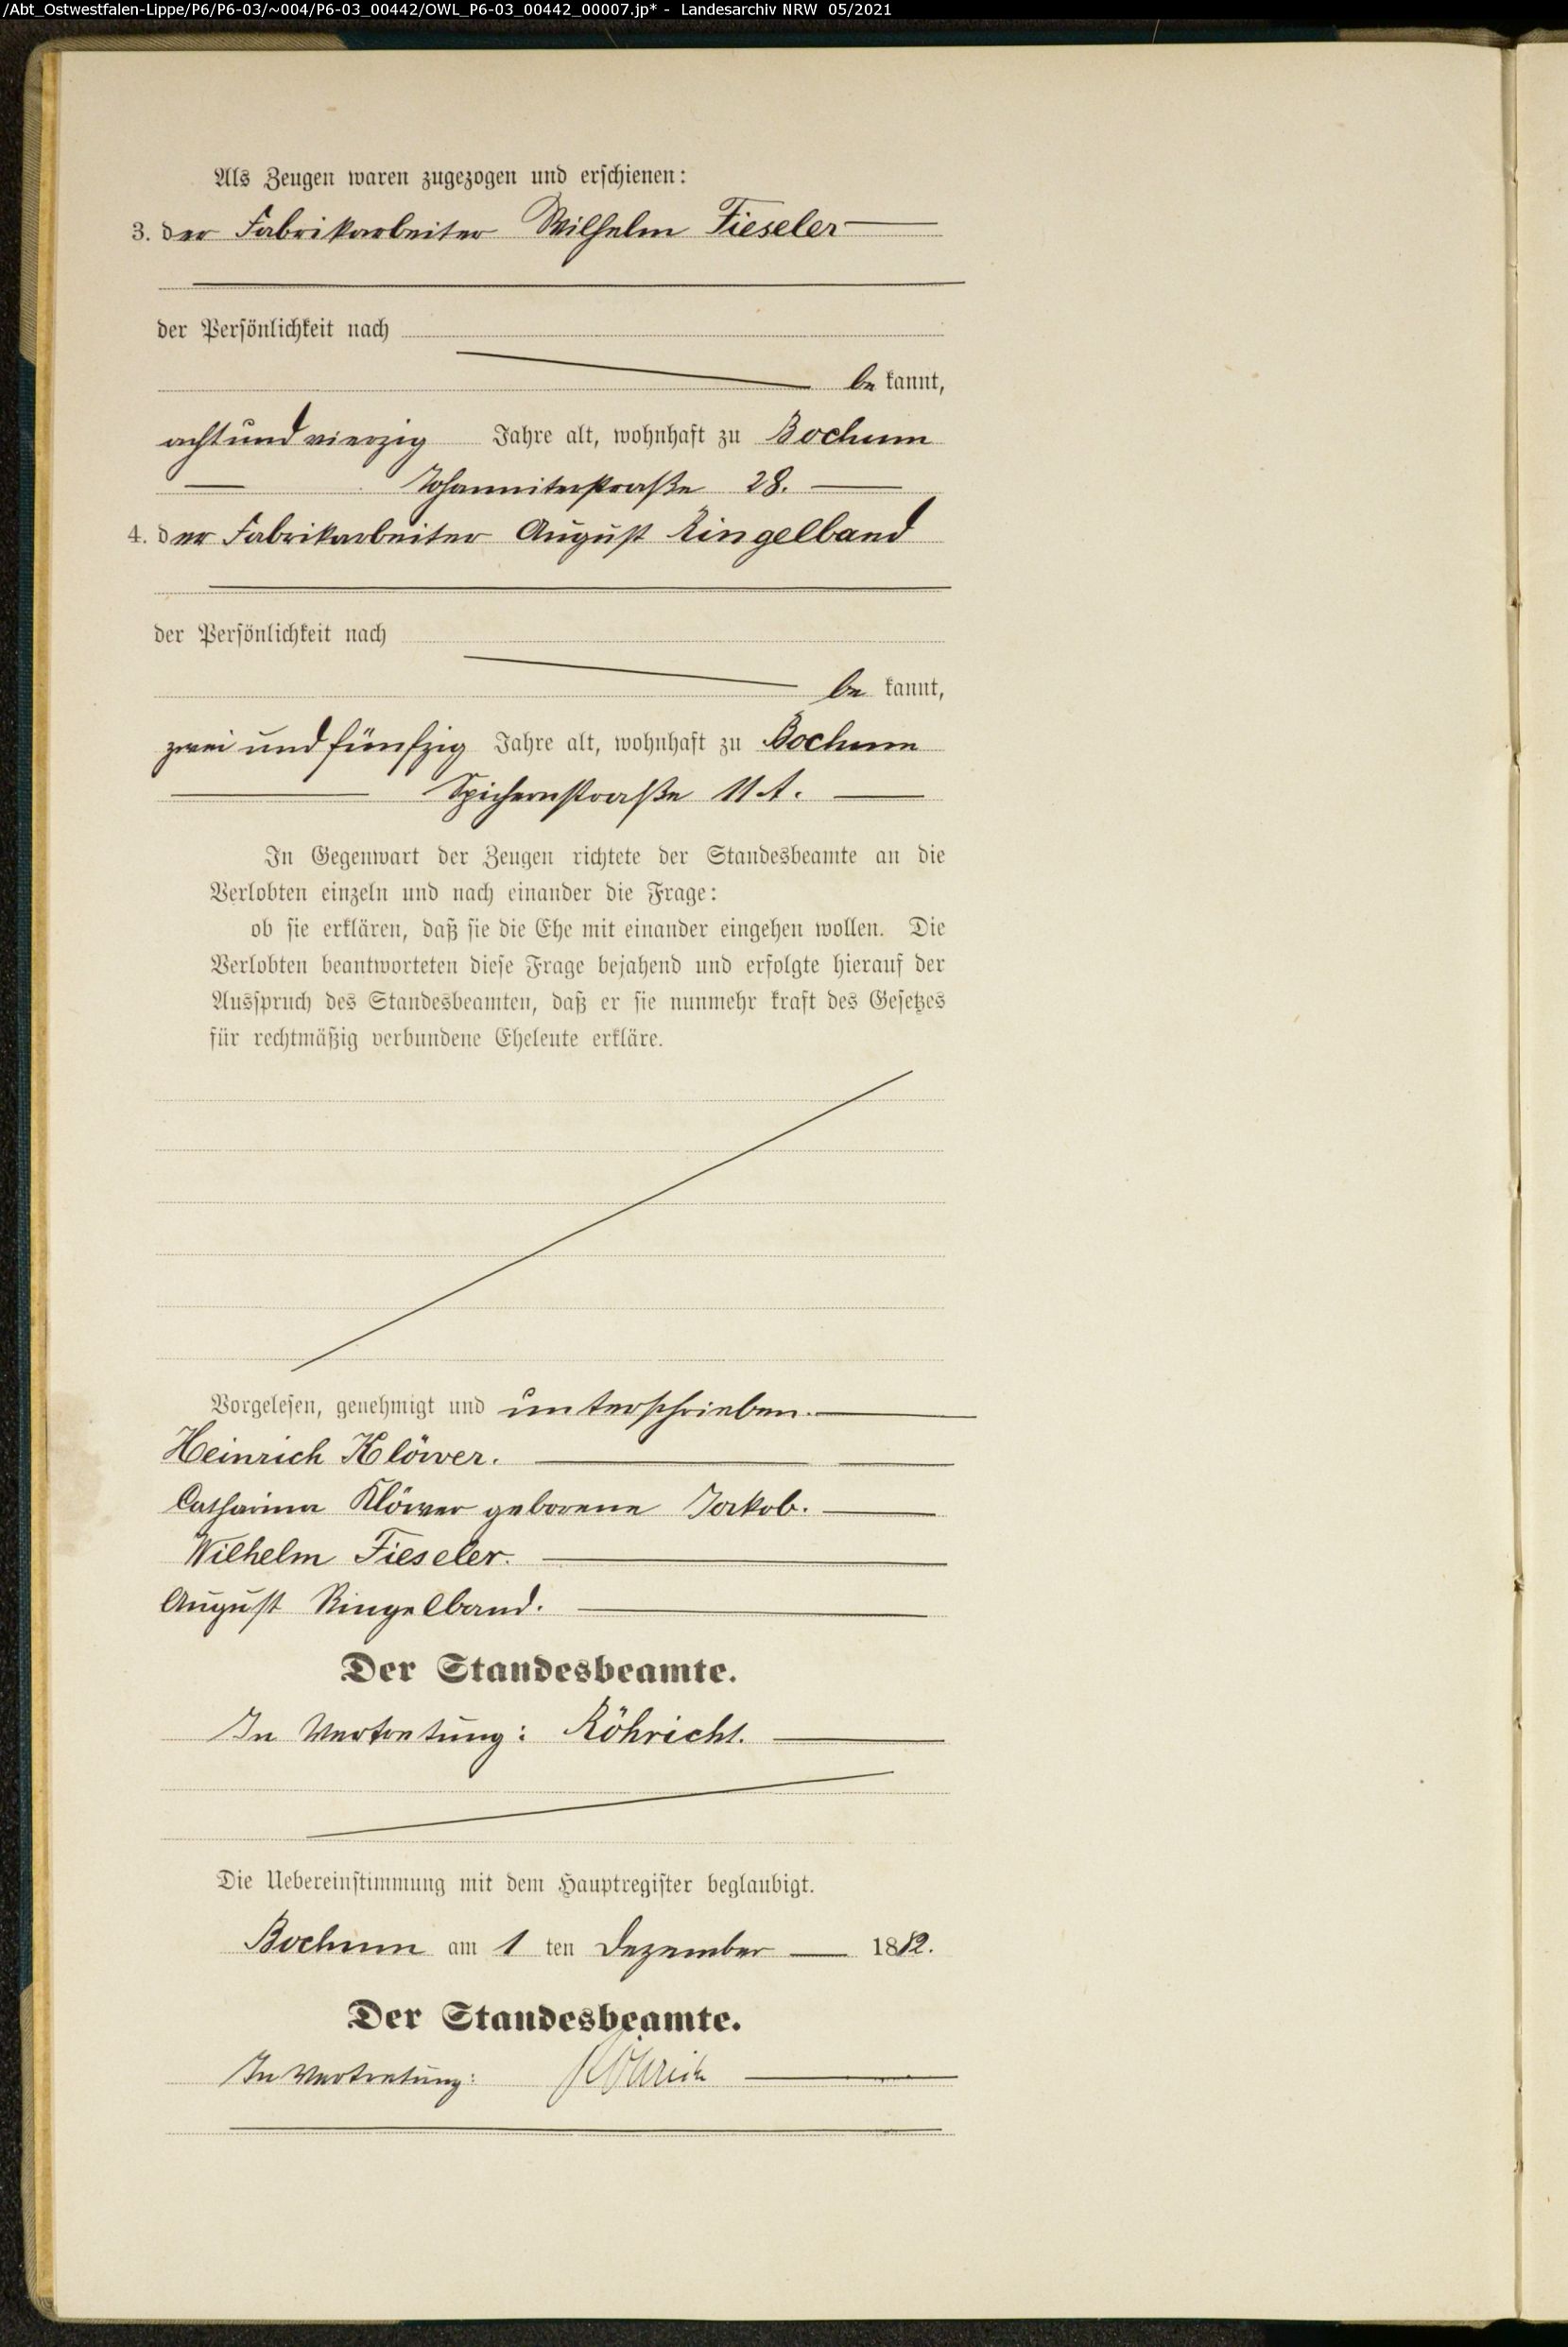 /Abt_Ostwestfalen-Lippe/P6/P6-03/~004/P6-03_00442/OWL_P6-03_00442_00007.jp* - Landesarchiv NRW 05/2021
Als Zeugen waren zugezogen und erschienen:
3. der Fabrikarbeiter Wilhelm Fieseler
der Persönlichkeit nach
be kannt,
achtundvierzig Jahre alt, wohnhaft zu Bochum
Johanniterstraße 28.
4. der Fabrikarbeiter August Ringelband
der Persönlichkeit nach
be kannt,
zwei und fünfzig Jahre alt, wohnhaft zu Bochum
Spichernstraße 11 A.
In Gegenwart der Zeugen richtete der Standesbeamte an die
Verlobten einzeln und nach einander die Frage:
ob sie erklären, daß sie die Ehe mit einander eingehen wollen. Die
Verlobten beantworteten diese Frage bejahend und erfolgte hierauf der
Ausspruch des Standesbeamten, daß er sie nunmehr kraft des Gesetzes
für rechtmäßig verbundene Eheleute erkläre.
Vorgelesen, genehmigt und unterschrieben.
Heinrich Klöwer.
Catharina Klöwer geborene Jakob.
Wilhelm Fieseler.
August Ringelband.
Der Standesbeamte.
In Vertretung: Röhricht.
Die Uebereinstimmung mit dem Hauptregister beglaubigt.
Bochum am 1 ten Dezember
Der Standesbeamte.
In Vertretung: